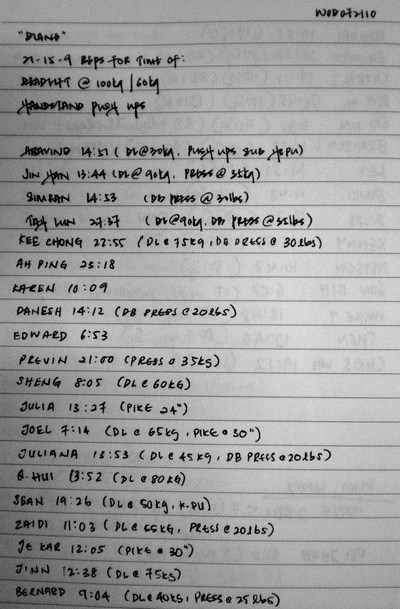 WOD 072110
"DIANE"
21-15-9 REPS FOR TIME OF:
DEADLIFT @ 100kg / 60kg
HANDSTAND PUSH UPS
ARAVIND 14:51 (DL@30kg, PUSH UPS SUB HSPU)
JIN HAN 13:44 (DL@90kg, PRESS@35kg)
SIMRAN 14:53 (DB PRESS@30lbs)
TAY LUN 27:37 (DL@90kg, DB PRESS@35lbs)
KEE CHONG 27:55 (DL@75kg, DB PRESS@30lbs)
AH PING 25:18
KAREN 10:09
DANESH 14:12 (DB PRESS@20lbs)
EDWARD 6:53
PREVIN 21:00 (PRESS@35kg)
SHENG 8:05 (DL@60KG)
JULIA 13:27 (PIKE 24")
JOEL 7:14 (DL@65kg, PIKE@30")
JULIANA 13:53 (DL@45kg, DB PRESS@20lbs)
Q.HUI 13:52 (DL@80KG)
SEAN 19:26 (DL@50kg, K.PU)
ZAIDI 11:03 (DL@55kg, PRESS@20lbs)
JE KAR 12:05 (PIKE@30")
JINN 12:38 (DL@75kg)
BERNARD 9:04 (DL@40kg, PRESS@25lbs)